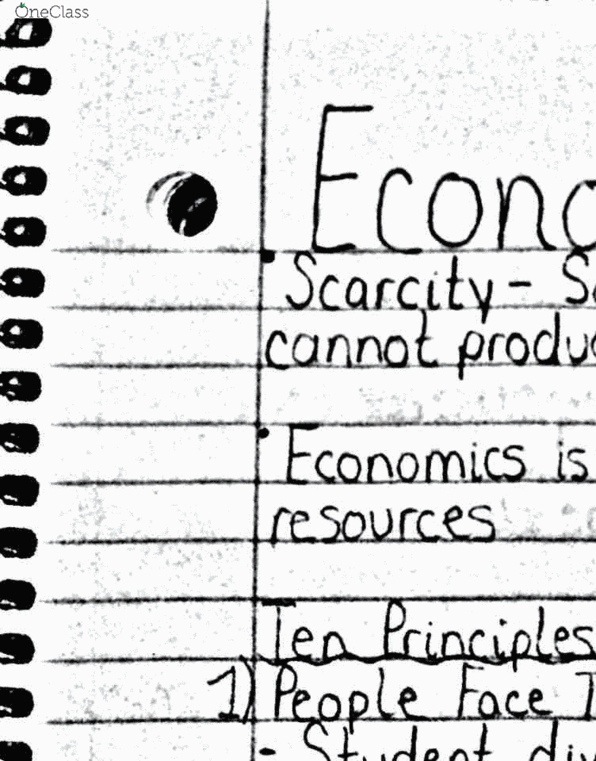 OneClass
Econo
• Scarcity - So
cannot produc
• Economics is
resources
Ten Principles
1) People Face T
- Student div